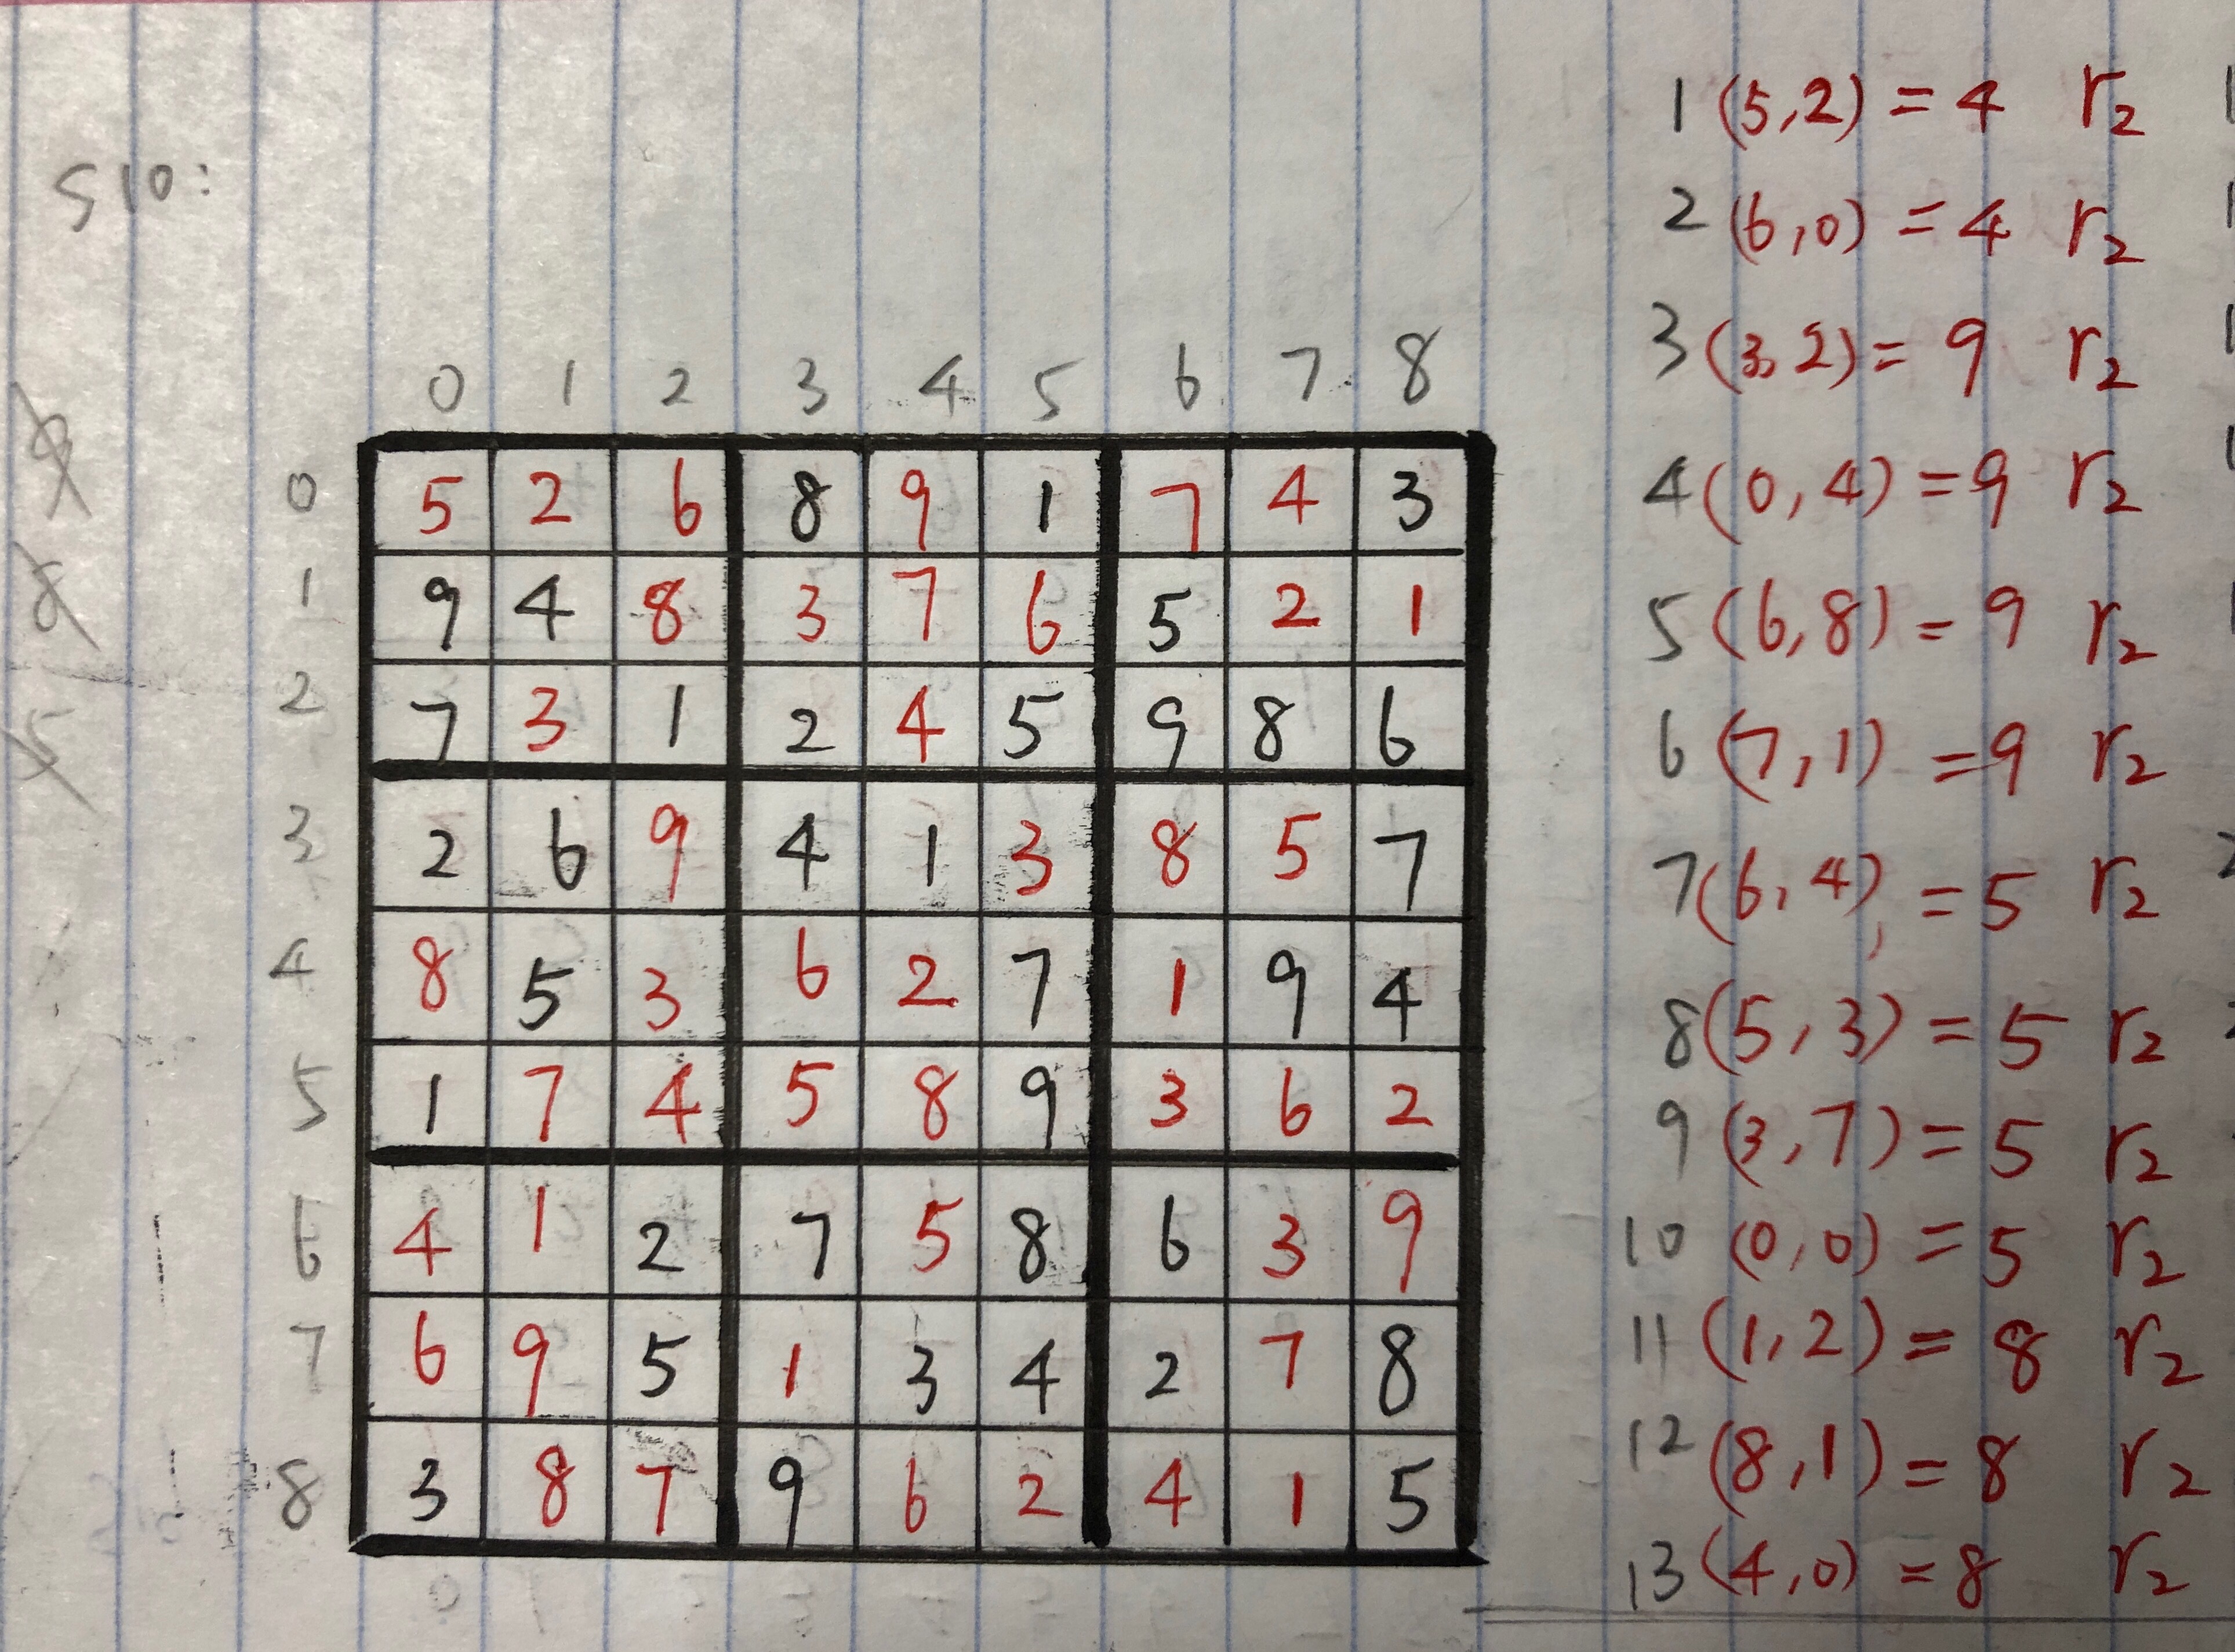 S10:
0 1 2 3 4 5 6 7 8
0 5 2 6 8 9 1 7 4 3
1 9 4 8 3 7 6 5 2 1
2 7 3 1 2 4 5 9 8 6
3 2 6 9 4 1 3 8 5 7
4 8 5 3 6 2 7 1 9 4
5 1 7 4 5 8 9 3 6 2
6 4 1 2 7 5 8 6 3 9
7 6 9 5 1 3 4 2 7 8
8 3 8 7 9 6 2 4 1 5
1 (5,2) = 4 r2
2 (6,0) = 4 r2
3 (3,2) = 9 r2
4 (0,4) = 9 r2
5 (6,8) = 9 r2
6 (7,1) = 9 r2
7 (6,4) = 5 r2
8 (5,3) = 5 r2
9 (3,7) = 5 r2
10 (0,0) = 5 r2
11 (1,2) = 8 r2
12 (8,1) = 8 r2
13 (4,0) = 8 r2